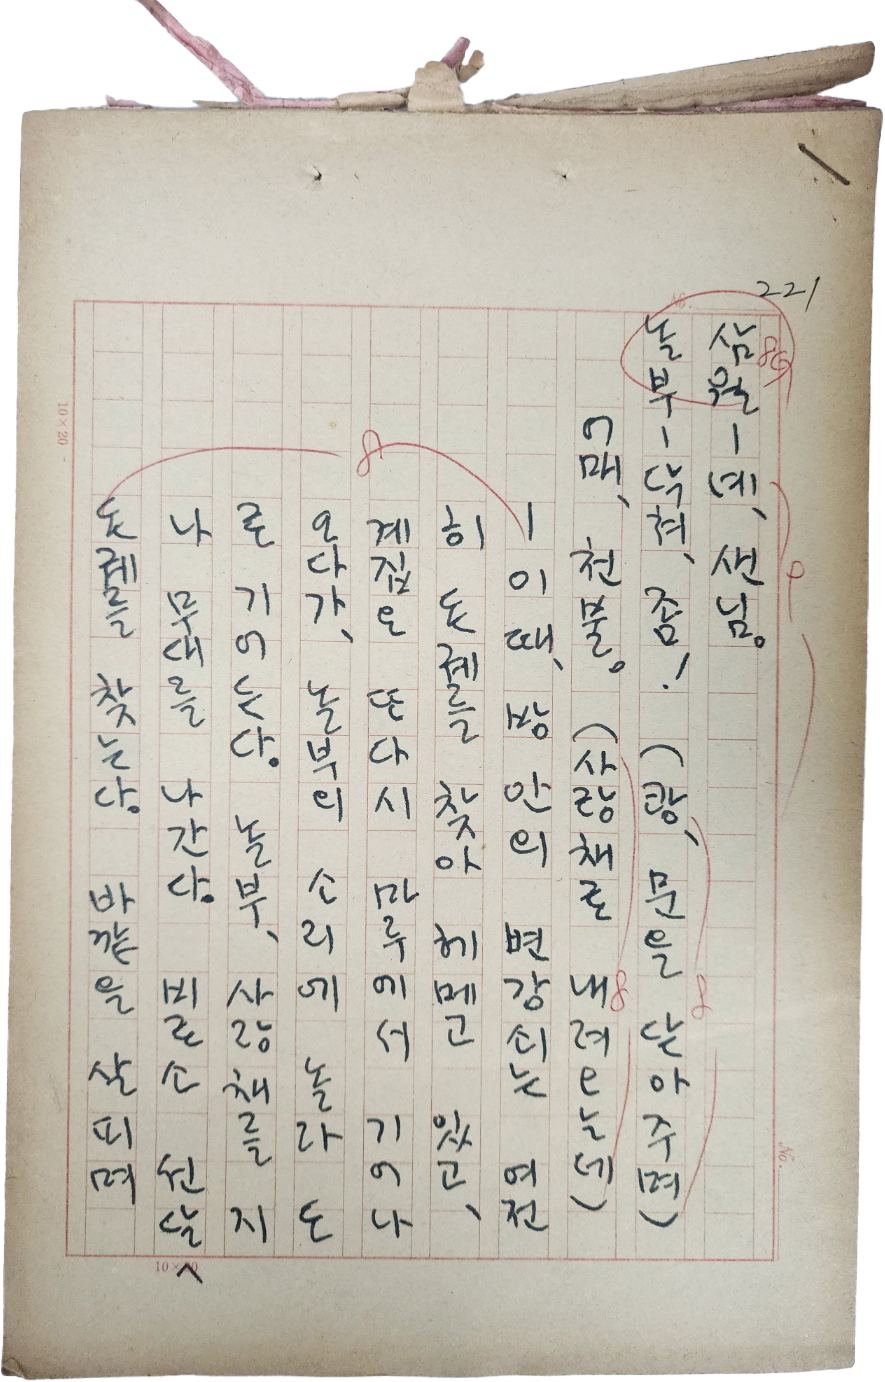 221
No.
삼월ー네、샌님。
놀부ー닥쳐、좀! (광、문을 닫아주며)
어매、천불。 (사랑채로 내려오는데)
ー이때、방 안의 변강쇠는 여전
히 찾아 헤메고 있고、
계집은 또다시 마루에서 기어나
오다가、놀부의 소리에 놀라 도
로 기어든다。놀부、사랑채를 지
나 무대를 나간다。비로소 선달
찾는다。바깥을 살피며
10×20
10×20
No.